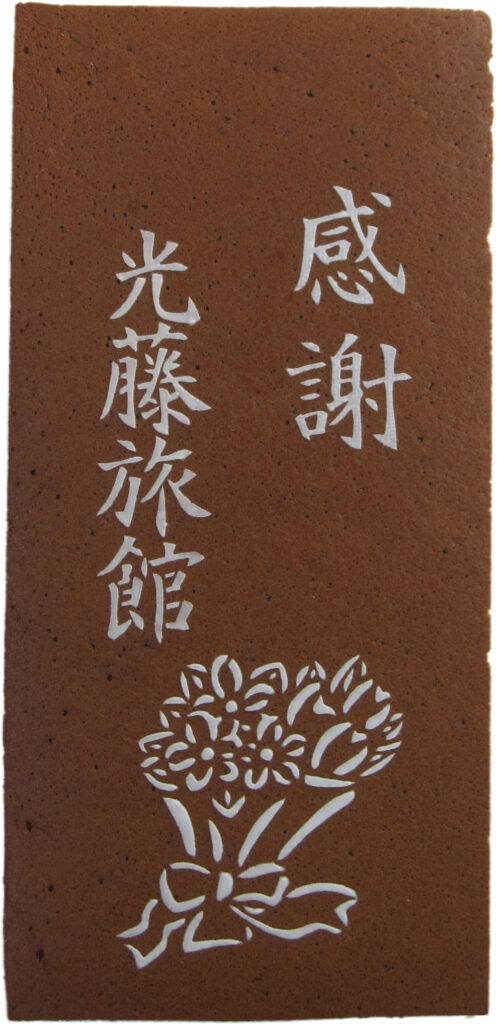 感謝
光藤旅館